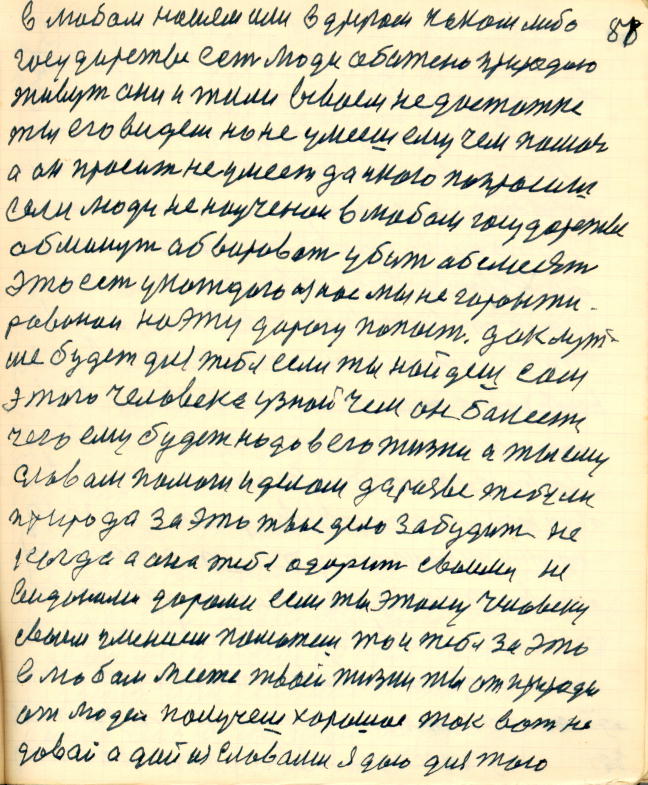 в любом нашем или в другом каком либо 81
государстве ест люди обижено природаю
живут они и жили в своем недостатке
ты его видеш но не умееш ему чем помоч
а он просит не умеет да никого попросит
если люди не наученои в любом государстве
обманут абвороват убют
это ест у каждого из нас мы не горонти-
равонои на эту дорогу попост. дак лутт-
ше будет для тебя если ты найдеш сам
этого человека узной чем он балеет
чего ему будет надо в его жизни а ты ему
словам помоги и делом да разве тебя
природа за это твае дело забудит не
когда а она тебя одорит своими не
виданами дорами если ты этому человеку
своем умением поможеш то и тебя за это
в любом месте твоей жизни ты от природы
от людей получеш харошое так вот не
довай а дай из словами я даю для того